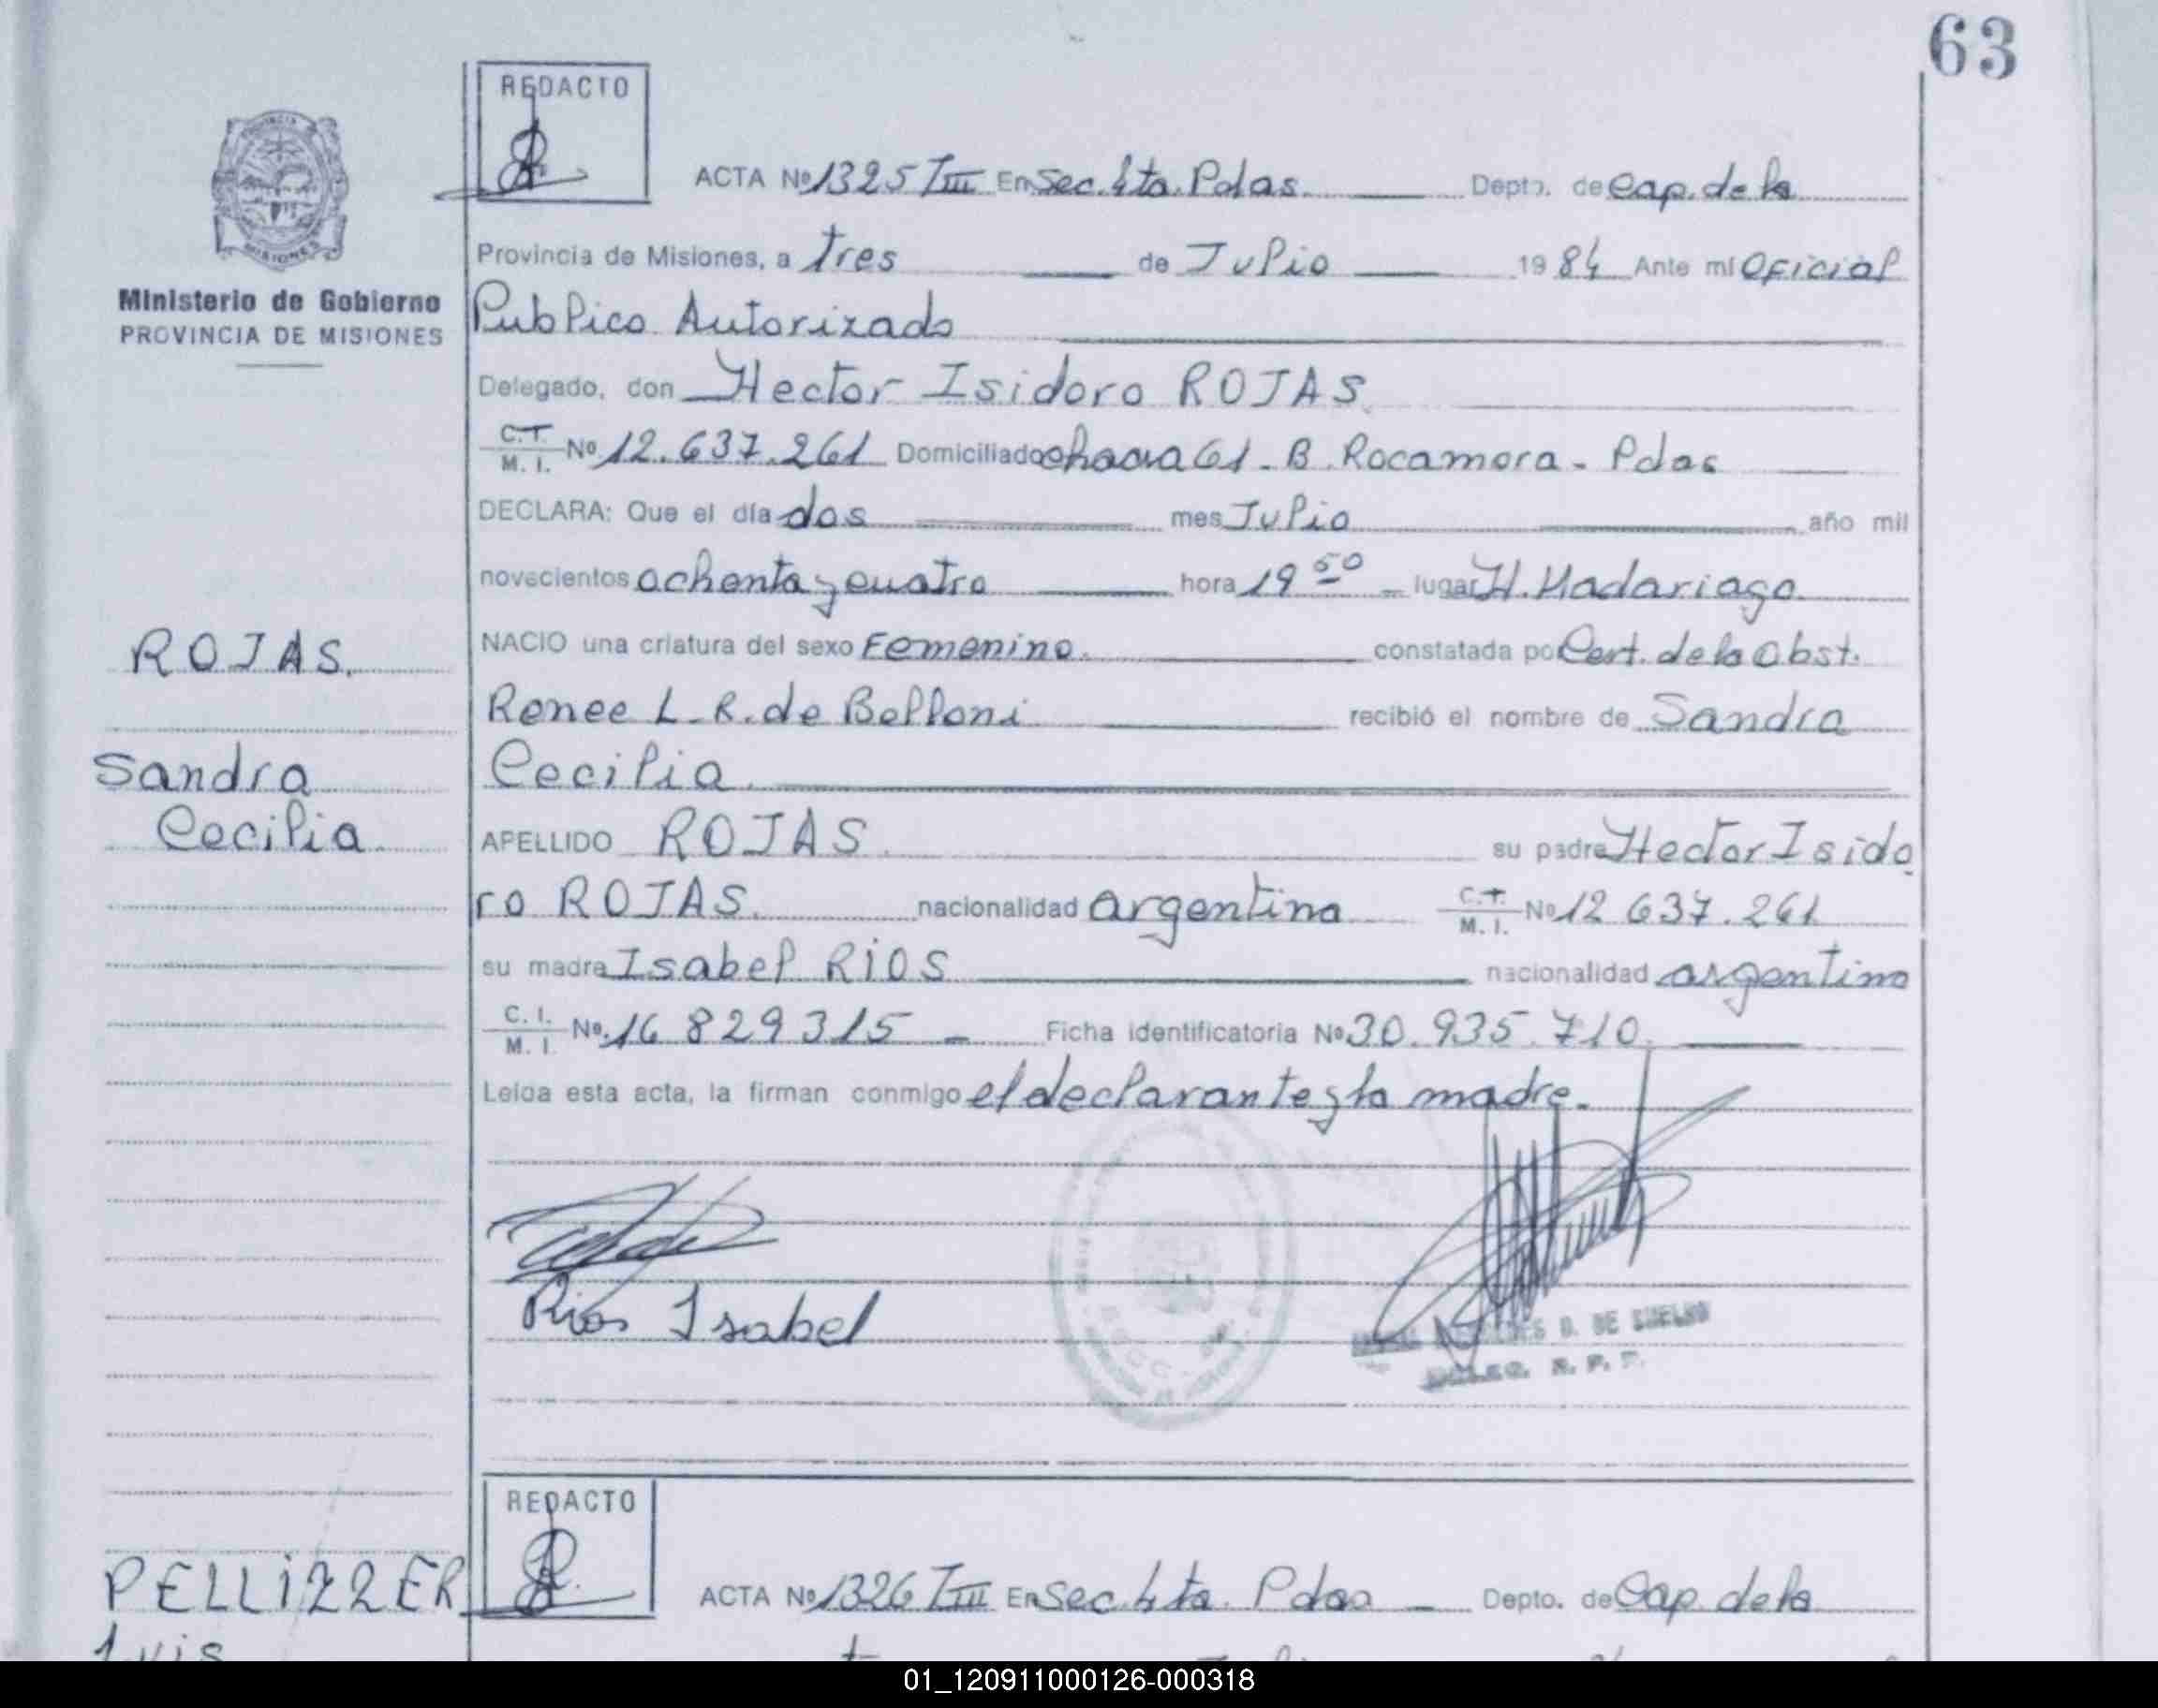 63
REDACTO
ACTA Nº 1325 TIII En Sec. 4ta. Pdas. Depto. de Cap. de la
Provincia de Misiones, a tres de Julio 1984 Ante mi Oficial
Ministerio de Gobierno
PROVINCIA DE MISIONES
Publico Autorizado
Delegado, don Hector Isidoro ROJAS
C.T. M. I. Nº 12.637.261 Domiciliado chacra 61 - B. Rocamora - Pdas
DECLARA: Que el día dos mes Julio año mil
novecientos ochenta y cuatro hora 19 50 lugar H. Madariaga
NACIO una criatura del sexo Femenino. constatada por Cert. de la Obst.
ROJAS.
Renee L. R. de Belloni recibió el nombre de Sandra
Sandra
Cecilia.
Cecilia.
APELLIDO ROJAS. su padre Hector Isido
ro ROJAS. nacionalidad argentina C.T. M. I. Nº 12 637.261
su madre Isabel RIOS nacionalidad argentina
C. I. M. I. Nº. 16 829 315 - Ficha identificatoria Nº 30.935.710.
Leida esta acta, la firman conmigo el declarante y la madre.
Rios Isabel
B. DE
REDACTO
PELLIZZER
ACTA Nº 1326 TIII En Sec. 4ta. Pdas - Depto. de Cap. de la
Luis
01_120911000126-000318